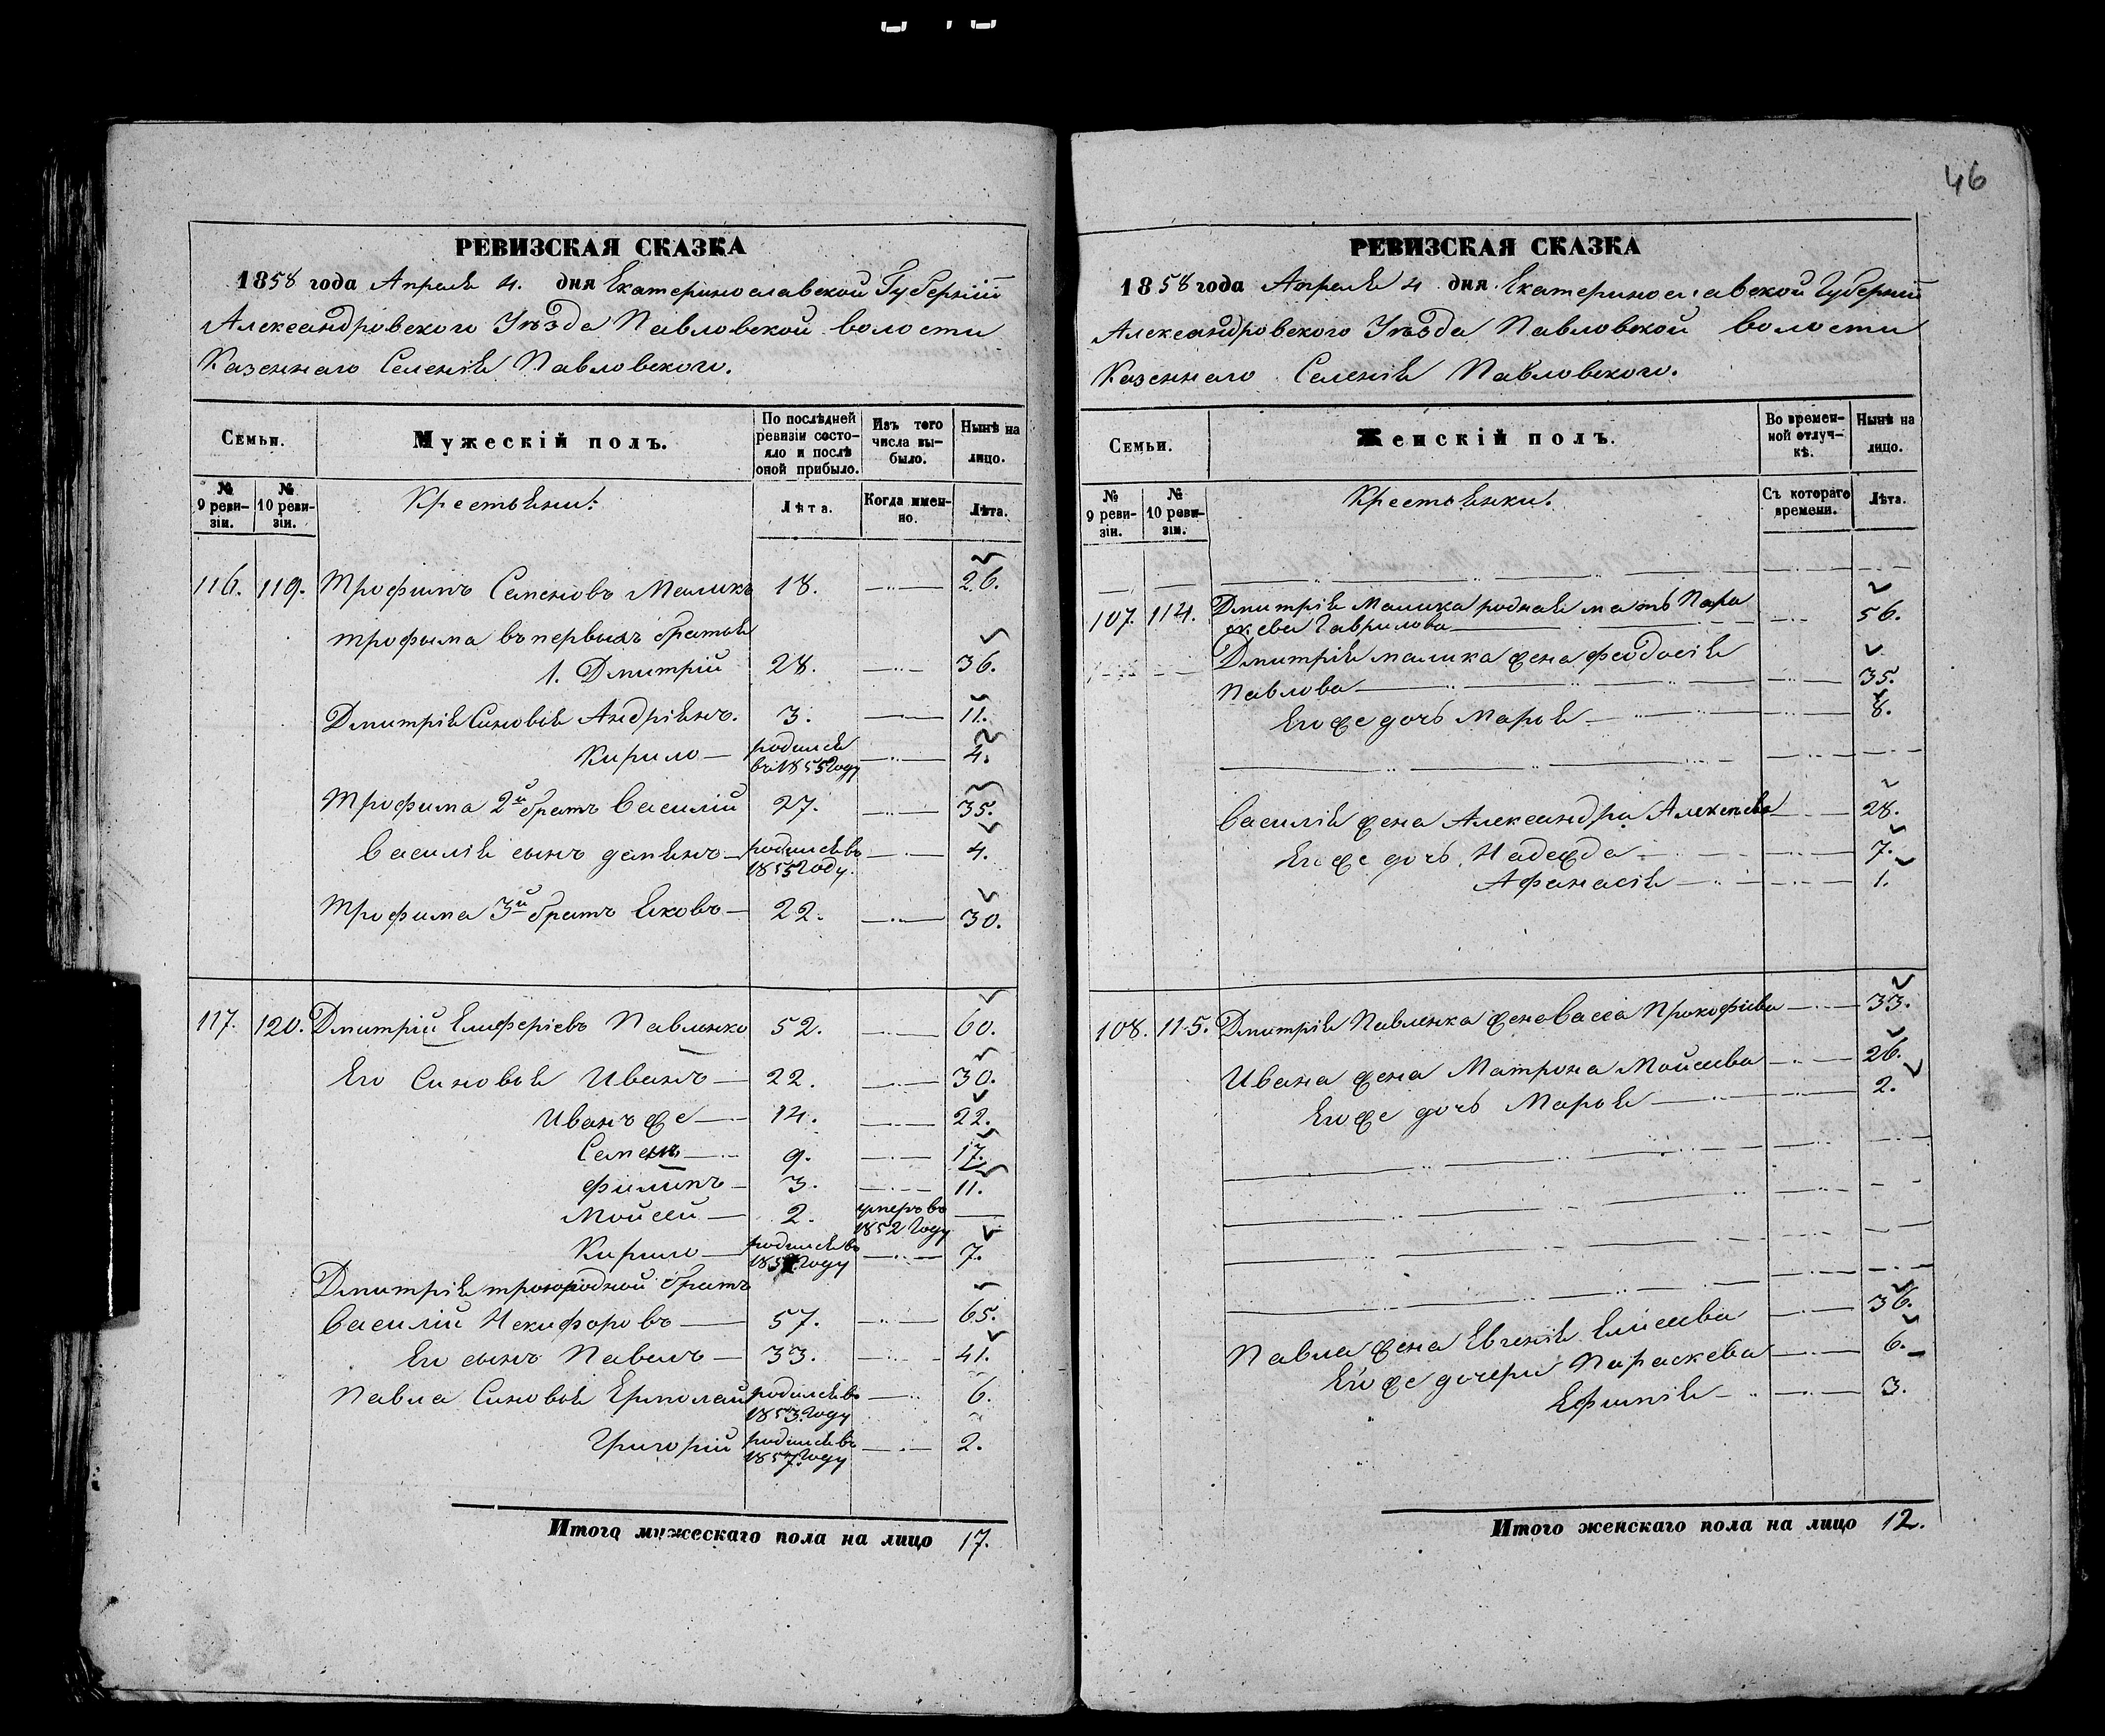 46
РЕВИЗСКАЯ СКАЗКА
1858 года Апреля 4. дня Екатеринославской Губерніи
Александровского Уѣзда Павловской волости
Казеннаго Селенія Павловского.
Семьи.
Мужескій полъ.
По послѣдней ревизіи состояло и послѣ оной прибыло.
Изъ того числа выбыло.
Нынѣ на лицо.
№ 9 ревизіи.
№ 10 ревизіи.
Крестьяни:
Лѣта.
Когда именно.
Лѣта.
116. 119. Трофимъ Семеновъ Маликъ 18. 26.
Трофыма въпервыхъ братья
1. Дмитрій 28. 36.
Дмитрія Сыновья Андріянъ. 3. 11.
Кирило родился въ 1855 Году 4.
Трофима 2й братъ Василій 27. 35.
Василія сынъ Демянъ родился въ 1855 Году. 4.
Трофима 3й братъ Яковъ 22. 30.
117. 120. Дмитрій Елиферіевъ Павленко 52. 60.
Его Сыновья Иванъ 22. 30.
Иванъ же 14. 22.
Семенъ 9. 17.
Филипъ 3. 11.
Мойсей 2. умеръ въ 1852 Году
Кирило родился въ Году 7.
Дмитрія троюродной братъ
Василій Некифоровъ 57. 65.
Его сынъ Павелъ 33. 41.
Павла Сыновья Ермолай родился въ 1853 Году 6.
Григорій родился въ 1857 Году 2.
Итого мужескаго пола на лицо 17.
РЕВИЗСКАЯ СКАЗКА
1858 года Апреля 4 дня Екатеринославской Губерніи
Александровского Уѣзда Павловской волости
Казеннаго Селенія Павловского.
Семьи.
Женскій полъ.
Во временной отлучкѣ.
Нынѣ на лицо.
№ 9 ревизіи.
№ 10 ревизіи.
Крестьянки:
Съ котораго времени.
Лѣта.
107. 114. Дмитрія Малика родная мать Пара
скева Гаврилова 56.
Дмитрія малика жена Феодосія
Павлова 35.
Его же дочь Марья 8.
Василія жена Александра Алексѣева 28.
Его же дочь Надежда 7.
Афанасія 1.
108. 115. Дмитрія Павленка жена Васса Прокофіева 33.
Ивана жена Матрона Мойсеева 26.
Его же дочь Марья 2.
Павла жена Евгенія Елисеева 36.
Его же дочери Параскева 6.
Ефимія 3.
Итого женскаго пола на лицо 12.